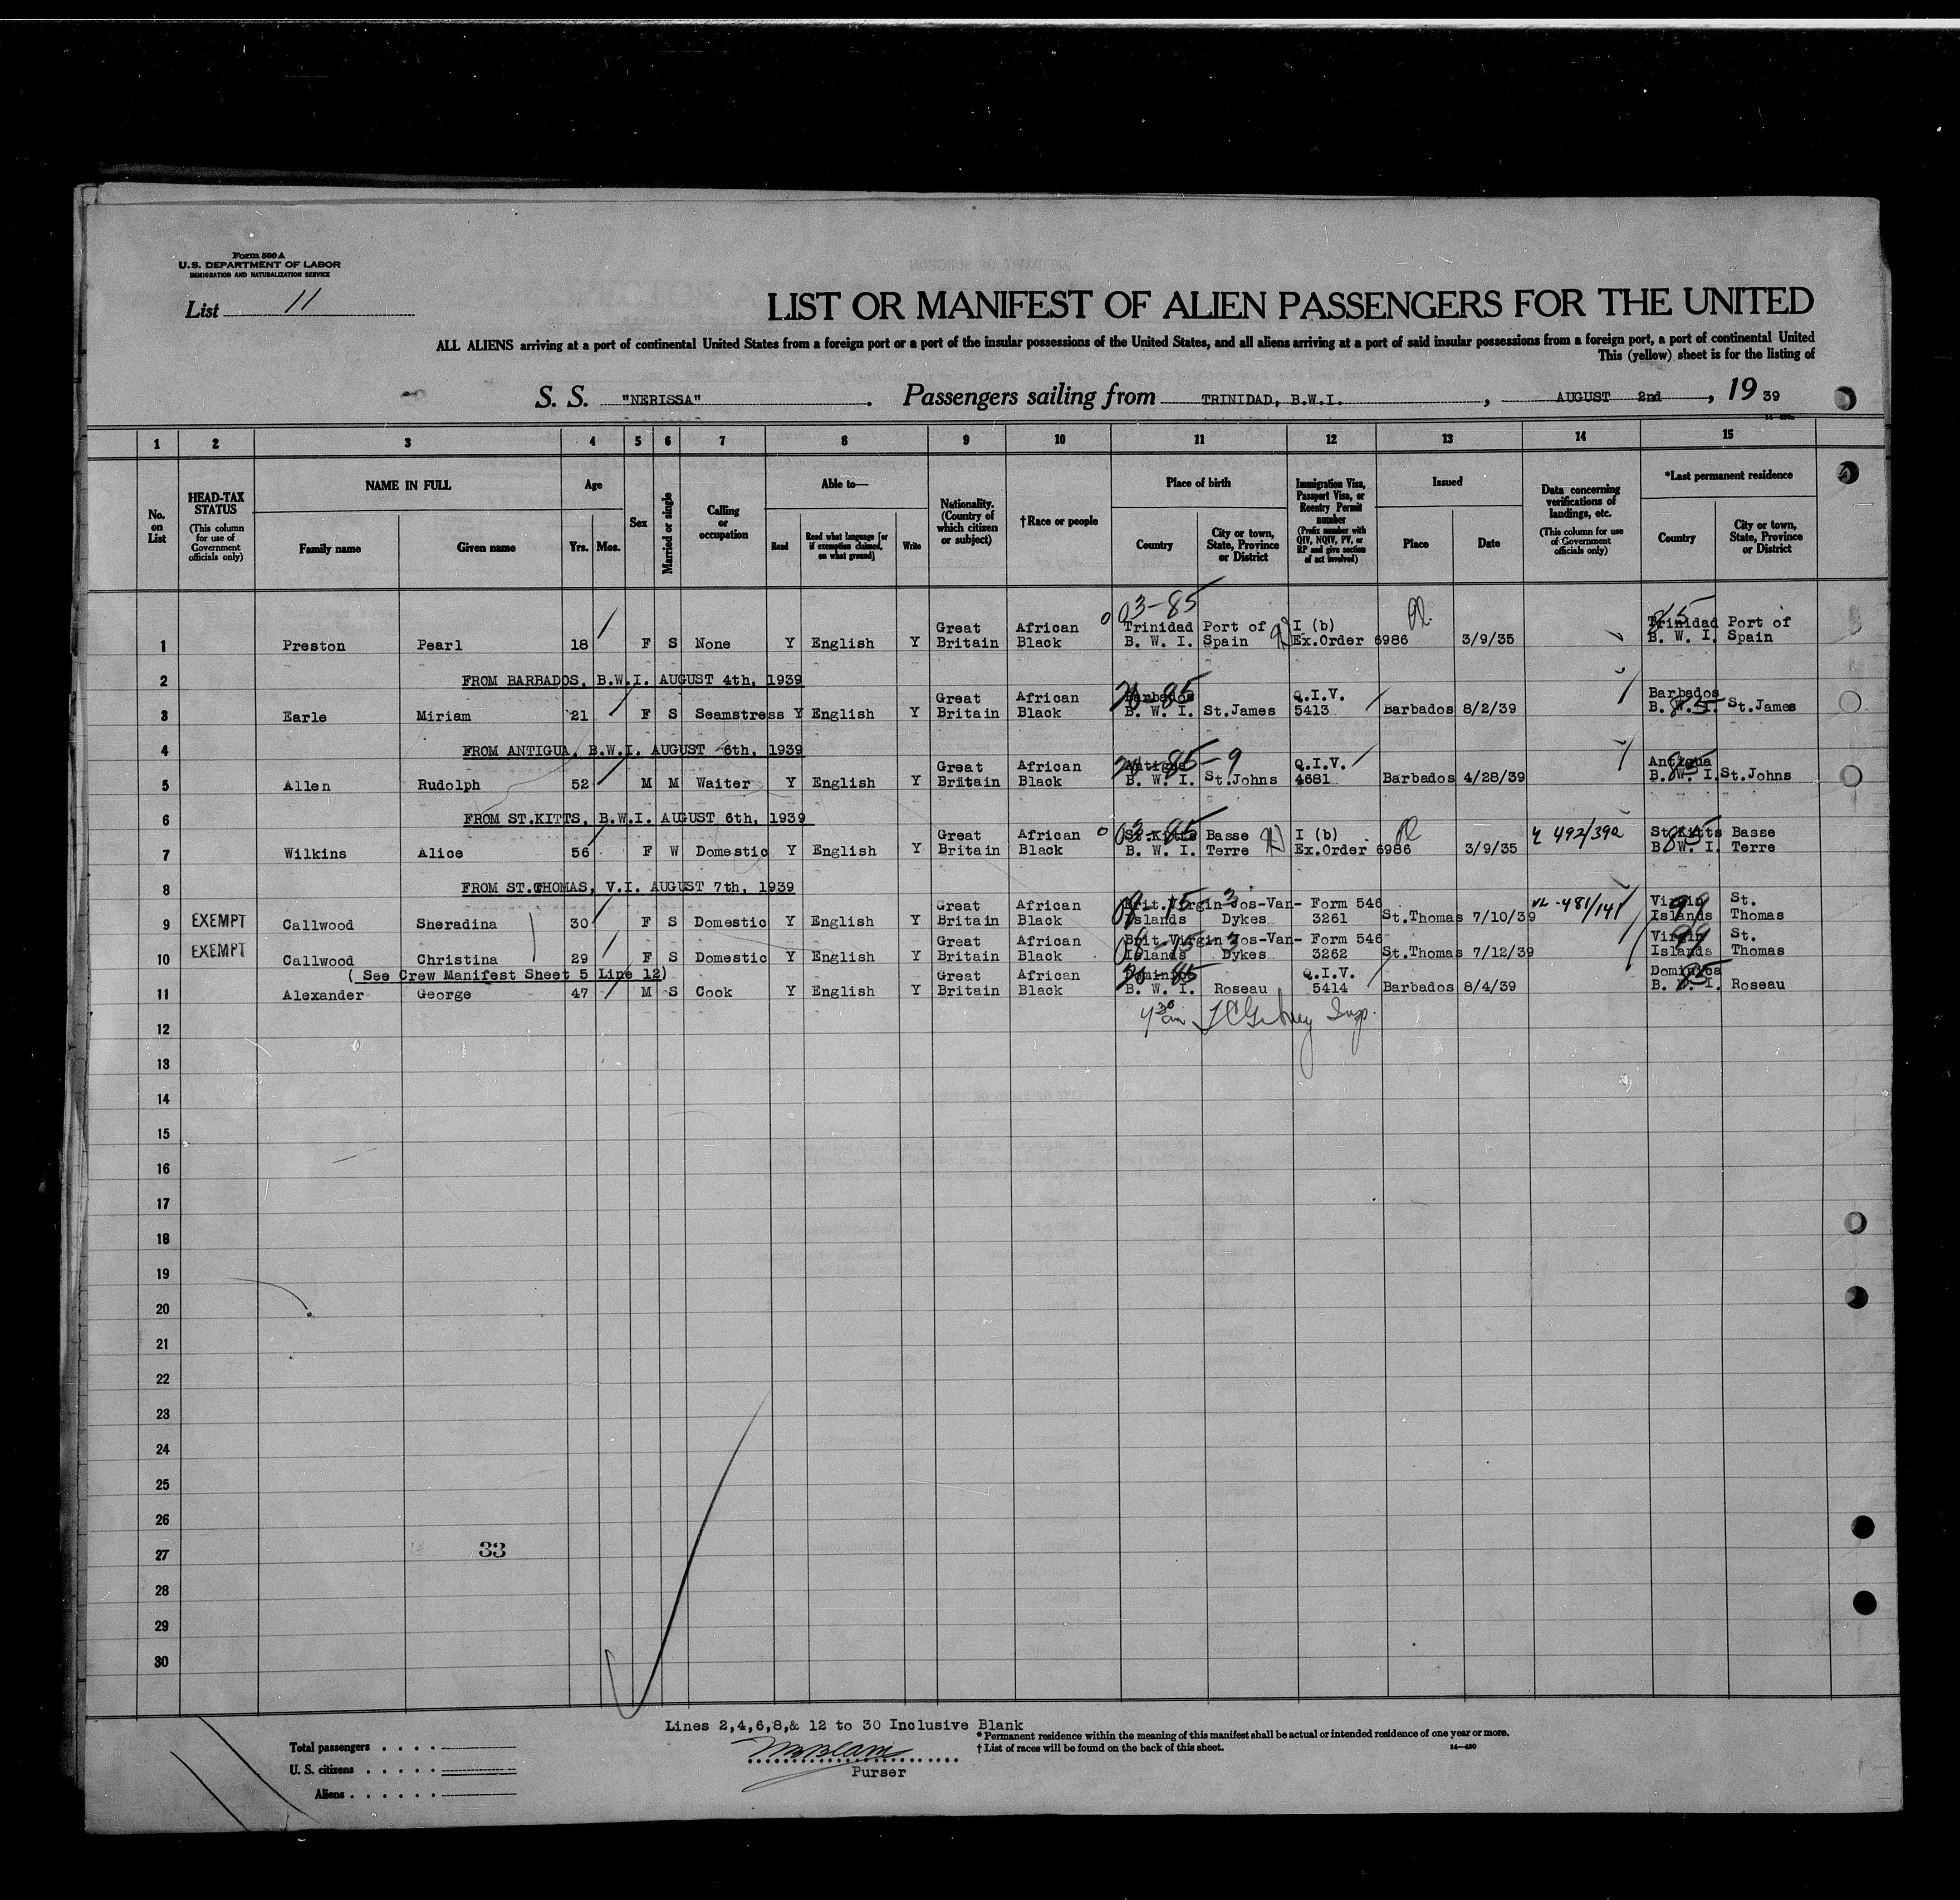 Form 500 A
U.S. DEPARTMENT OF LABOR
IMMIGRATION AND NATURALIZATION SERVICE
List 11
LIST OR MANIFEST OF ALIEN PASSENGERS FOR THE UNITED
ALL ALIENS arriving at a port of continental United States from a foreign port or a port of the insular possessions of the United States, and all aliens arriving at a port of said insular possessions from a foreign port, a port of continental United
This (yellow) sheet is for the listing of
S. S. "NERISSA". Passengers sailing from TRINIDAD, B.W.I., AUGUST 2nd, 19 39
1 2 3 4 5 6 7 8 9 10 11 12 13 14 15
No. on List
HEAD-TAX STATUS
(This column for use of Government officials only)
NAME IN FULL
Family name Given name
Age
Yrs. Mos.
Sex
Married or single
Calling or occupation
Able to—
Read
Read what language [or if exemption claimed, on what ground]
Write
Nationality. (Country of which citizen or subject)
†Race or people
Place of birth
Country
City or town, State, Province or District
Immigration Visa, Passport Visa, or Reentry Permit number
(Prefix number with QIV, NQIV, PV, or RP and give section of act involved)
Issued
Place Date
Data concerning verifications of landings, etc.
(This column for use of Government officials only)
*Last permanent residence
Country
City or town, State, Province or District
03-85 85
Great African Trinidad Port of I (b) Trinidad Port of
1 Preston Pearl 18 F S None Y English Y Britain Black B. W. I. Spain Ex.Order 6986 3/9/35 B. W. I. Spain
2 FROM BARBADOS, B.W.I. AUGUST 4th, 1939
Great African Barbados Q.I.V. Barbados
3 Earle Miriam 21 F S Seamstress Y English Y Britain Black B. W. I. St.James 5413 Barbados 8/2/39 B. W. I. St.James
4 FROM ANTIGUA, B.W.I. AUGUST 6th, 1939
Great African Antigua Q.I.V. Antigua
5 Allen Rudolph 52 M M Waiter Y English Y Britain Black B. W. I. St.Johns 4681 Barbados 4/28/39 B. W. I. St.Johns
6 FROM ST.KITTS, B.W.I. AUGUST 6th, 1939
Great African St.Kitts Basse I (b) 492/392 St.Kitts Basse
7 Wilkins Alice 56 F W Domestic Y English Y Britain Black B. W. I. Terre Ex.Order 6986 3/9/35 B. W. I. Terre
8 FROM ST.THOMAS, V.I. AUGUST 7th, 1939
Great African Brit.Virgin Jos-Van- Form 546 VL-481/141 Virgin St.
9 EXEMPT Callwood Sheradina 30 F S Domestic Y English Y Britain Black Islands Dykes 3261 St.Thomas 7/10/39 Islands Thomas
Great African Brit.Virgin Jos-Van- Form 546 Virgin St.
10 EXEMPT Callwood Christina 29 F S Domestic Y English Y Britain Black Islands Dykes 3262 St.Thomas 7/12/39 Islands Thomas
( See Crew Manifest Sheet 5 Line 12) Great African Dominica Q.I.V. Dominica
11 Alexander George 47 M S Cook Y English Y Britain Black B. W. I. Roseau 5414 Barbados 8/4/39 B. W. I. Roseau
12
13
14
15
16
17
18
19
20
21
22
23
24
25
26
27 33
28
29
30
Lines 2,4,6,8,& 12 to 30 Inclusive Blank
* Permanent residence within the meaning of this manifest shall be actual or intended residence of one year or more.
† List of races will be found on the back of this sheet.
Total passengers
U. S. citizens
Aliens
Purser